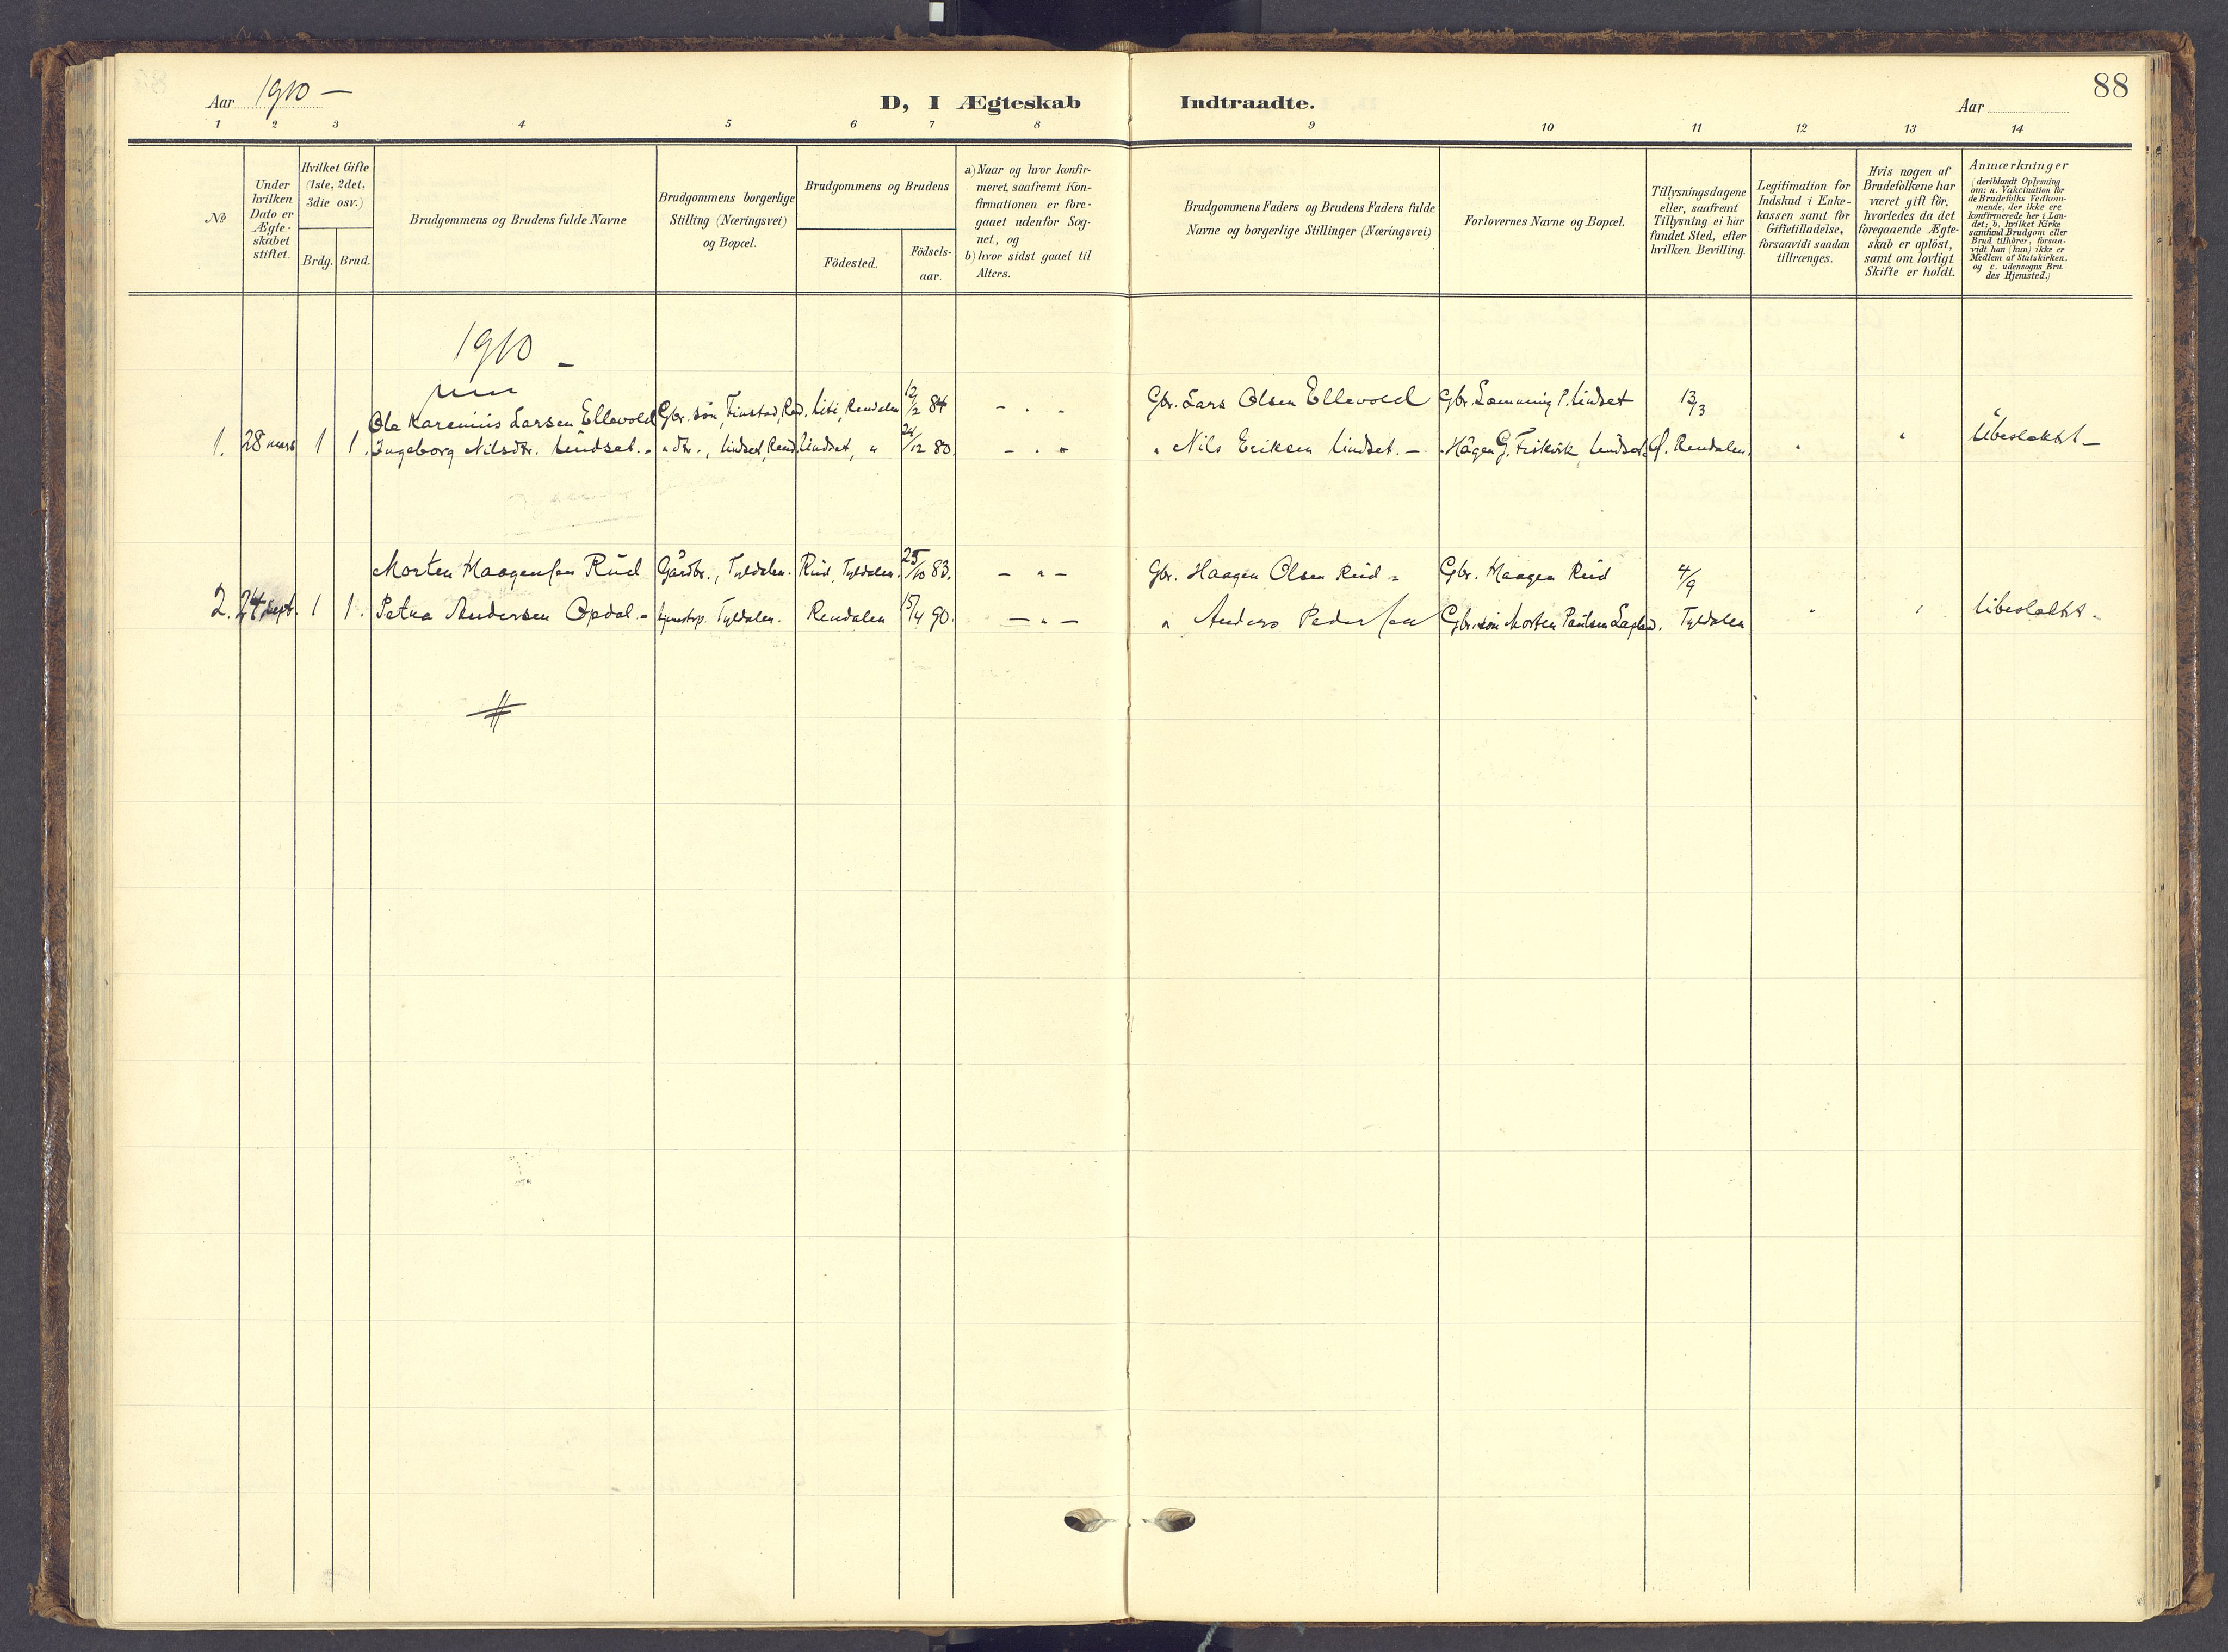 88
Aar 1910 —
D, I Ægteskab Indtraadte.
Aar
1 2 3 4 5 6 7 8 9 10 11 12 13 14
No
Under hvilken Dato er Ægte-skabet stiftet.
Hvilket Gifte (1ste, 2det, 3die osv.)
Brdg. Brud.
Brudgommens og Brudens fulde Navne
Brudgommens borgerlige Stilling (Næringsvei) og Bopæl.
Brudgommens og Brudens
Födested. Födsels-aar.
a) Naar og hvor konfir-meret, saafremt Kon-firmationen er fore-gaaet udenfor Sog-net, og
b) hvor sidst gaaet til Alters.
Brudgommens Faders og Brudens Faders fulde Navne og borgerlige Stillinger (Næringsvei)
Forlovernes Navne og Bopæl.
Tillysningsdagene eller, saafremt Tillysning ei har fundet Sted, efter hvilken Bevilling.
Legitimation for Indskud i Enke-kassen samt for Giftetilladelse, forsaavidt saadan tiltrænges.
Hvis nogen af Brudefolkene har været gift för, hvorledes da det foregaaende Ægte-skab er oplöst, samt om lovligt Skifte er holdt.
Anmærkninger
(deriblandt Oplysning om: a. Vakcination for de Brudefolks Vedkom-mende, der ikke ere konfirmerede her i Lan-det; b. hvilket Kirke samfund Brudgom eller Brud tilhörer, forsaa-vidt han (hun) ikke er Medlem af Statskirken. og c. udensogns Bru des Hjemsted.)
1910 —
Ole Karenius Larsen Ellevold Gbr. sön, Finstad, Rend. Liti, Rendalen 12/2 84 - . - Gbr. Lars Olsen Ellevold Gbr. Lamming P. Undset 13/3
1. 28 mars 1 1. Ingeborg Nilsdtr. Undset. - " dtr., Undset, Rend. Undset, " 24/12 80. - . - " Nils Eriksen Undset. — " Hågen G. Fiskvik, Undset. Ø. Rendalen. " " Ubeslektet —
Morten Haagensen Rud Gårdbr., Tyldalen. Rud, Tyldalen. 25/10 83. — " — Gbr. Haagen Olsen Rud - Gbr. Haagen Rud 4/9
2. 24 sept. 1 1. Petra Andersen Opdal. - Tyldalen. Rendalen 15/4 90. — " — " Anders Pedersen Gbr. sön Morten Paulsen Tyldalen " " Ubeslektet.